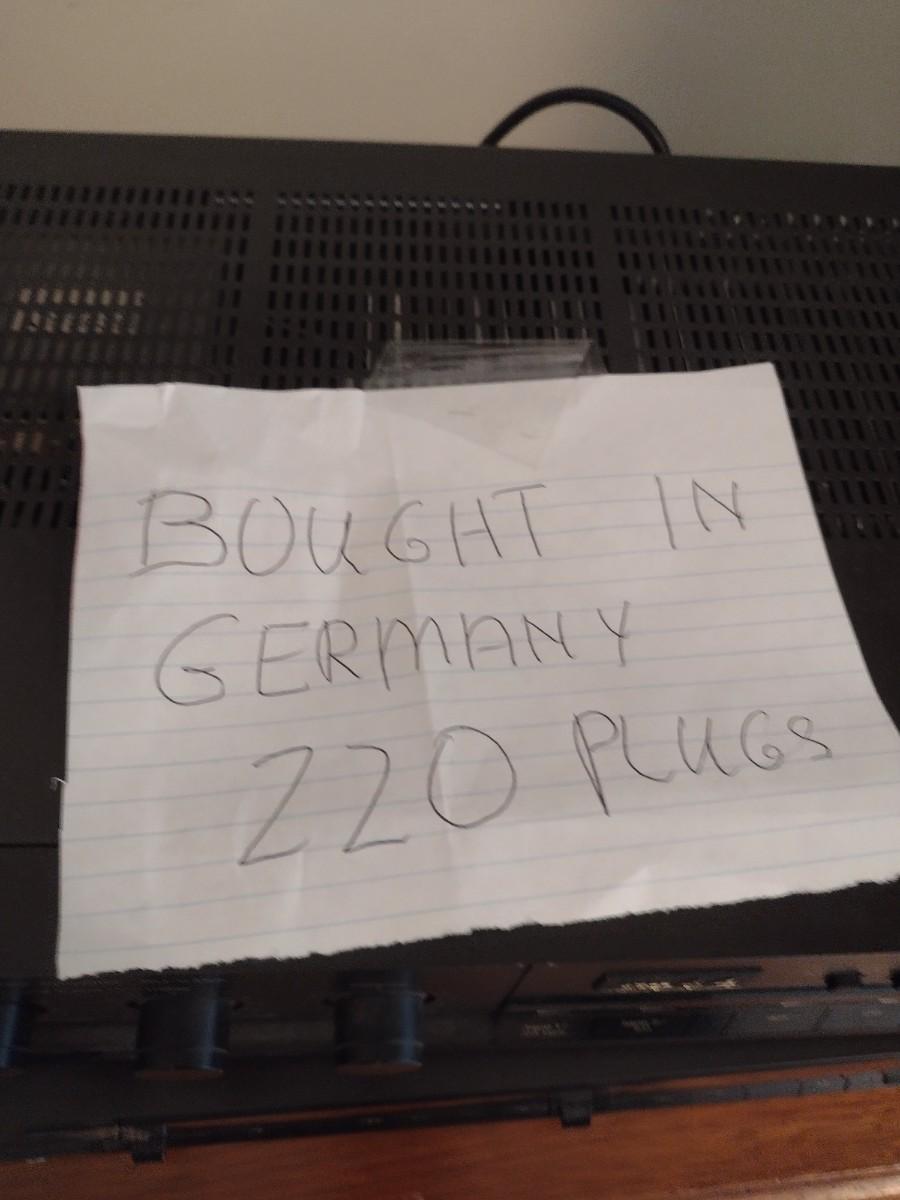 BOUGHT IN
GERMANY
220 PLUGS